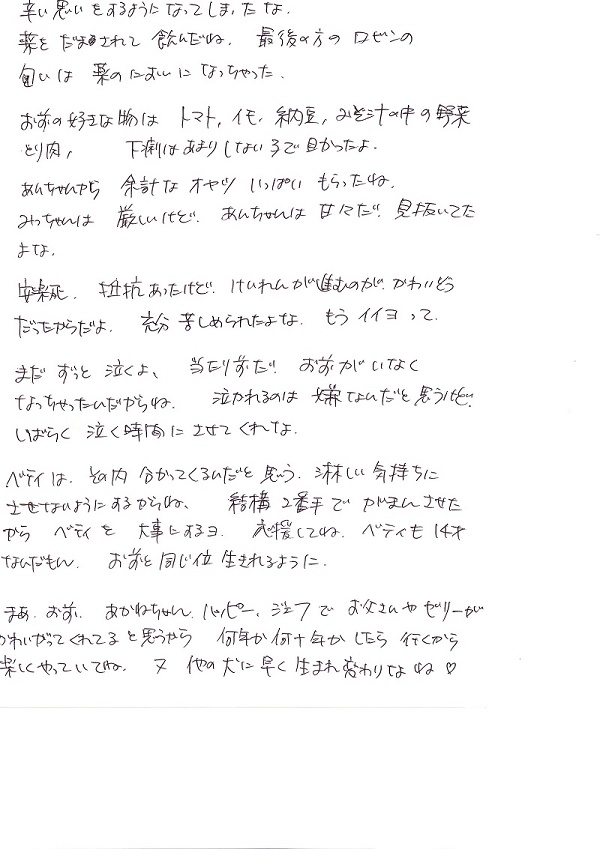 辛い思いをするようになってしまったな.
薬を だまされて 飲んだね. 最後の方の ロゼンの
匂いは 薬のにおいに なっちゃった.
お前の好きな物は トマト, イモ, 納豆, みそ汁の中の野菜
とり肉, 下痢はあまりしない子で良かったよ.
あんちゃんから 余計な オヤツ いっぱい もらったね.
みっちゃんは 厳しいけど. あんちゃんは 甘々だ! 見抜いてた
よな.
安楽死. 抵抗あったけど. けいれんが進むのが. かわいそう
だったからだよ. 充分 苦しめられたよな. もう イイヨ って.
まだ ずっと 泣くよ、 当たり前だ! お前が いなく
なっちゃったんだからね. 泣かれるのは 嫌なんだと思うけど.
しばらく 泣く時間に させてくれよな.
ベティは、その内 分かってくるんだと思う. 淋しい気持ちに
させないようにするからね. 結構 2番手で がまんさせた
から ベティを 大事にするヨ. 応援してね. ベティも 14才
なんだもん. お前と 同じ位 生きれるように.
まあ. お前. あかねちゃん. ハッピー、ジェフで お父さんやゼリーが
かわいがってくれてると思うから 何年か何十年かしたら 行くから
楽しくやっていてね. 又 他の犬に 早く 生まれ変わりなね♡